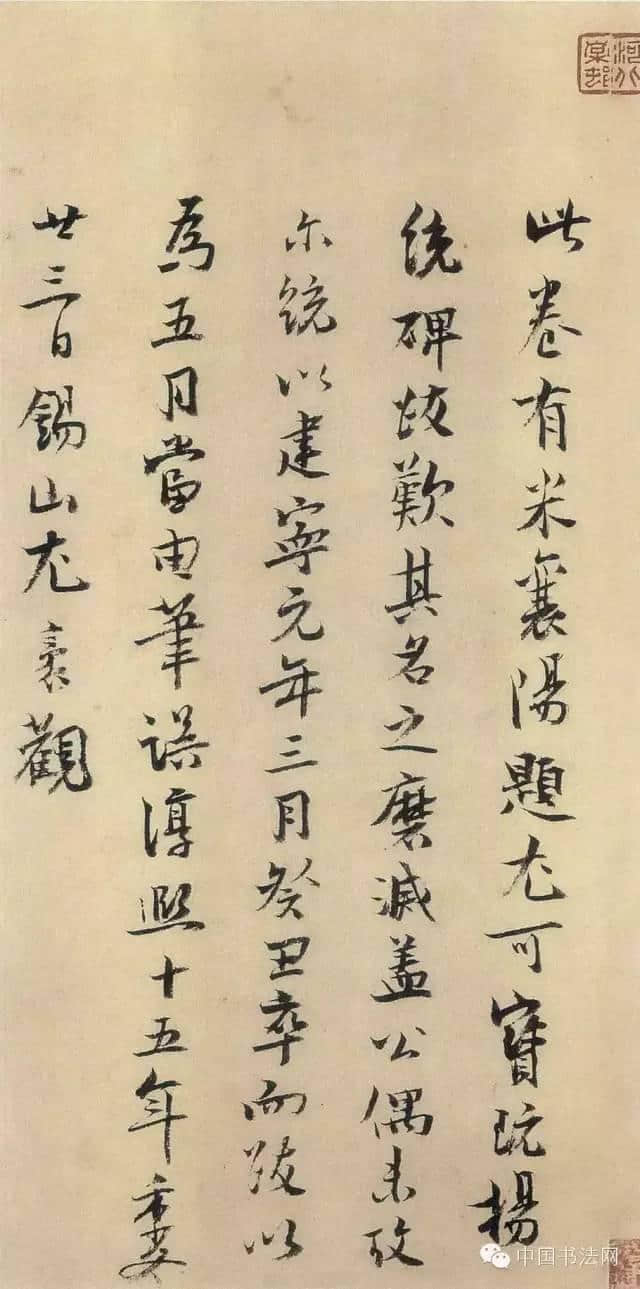 此卷有米襄陽題尤可寶玩楊
統碑跋歎其名之磨滅蓋公偶未攷
尓統以建寧元年三月癸丑卒而跋以
為五月當由筆誤淳熙十五年季夏
廿三日錫山尤袤觀
河北棠村
中国书法网